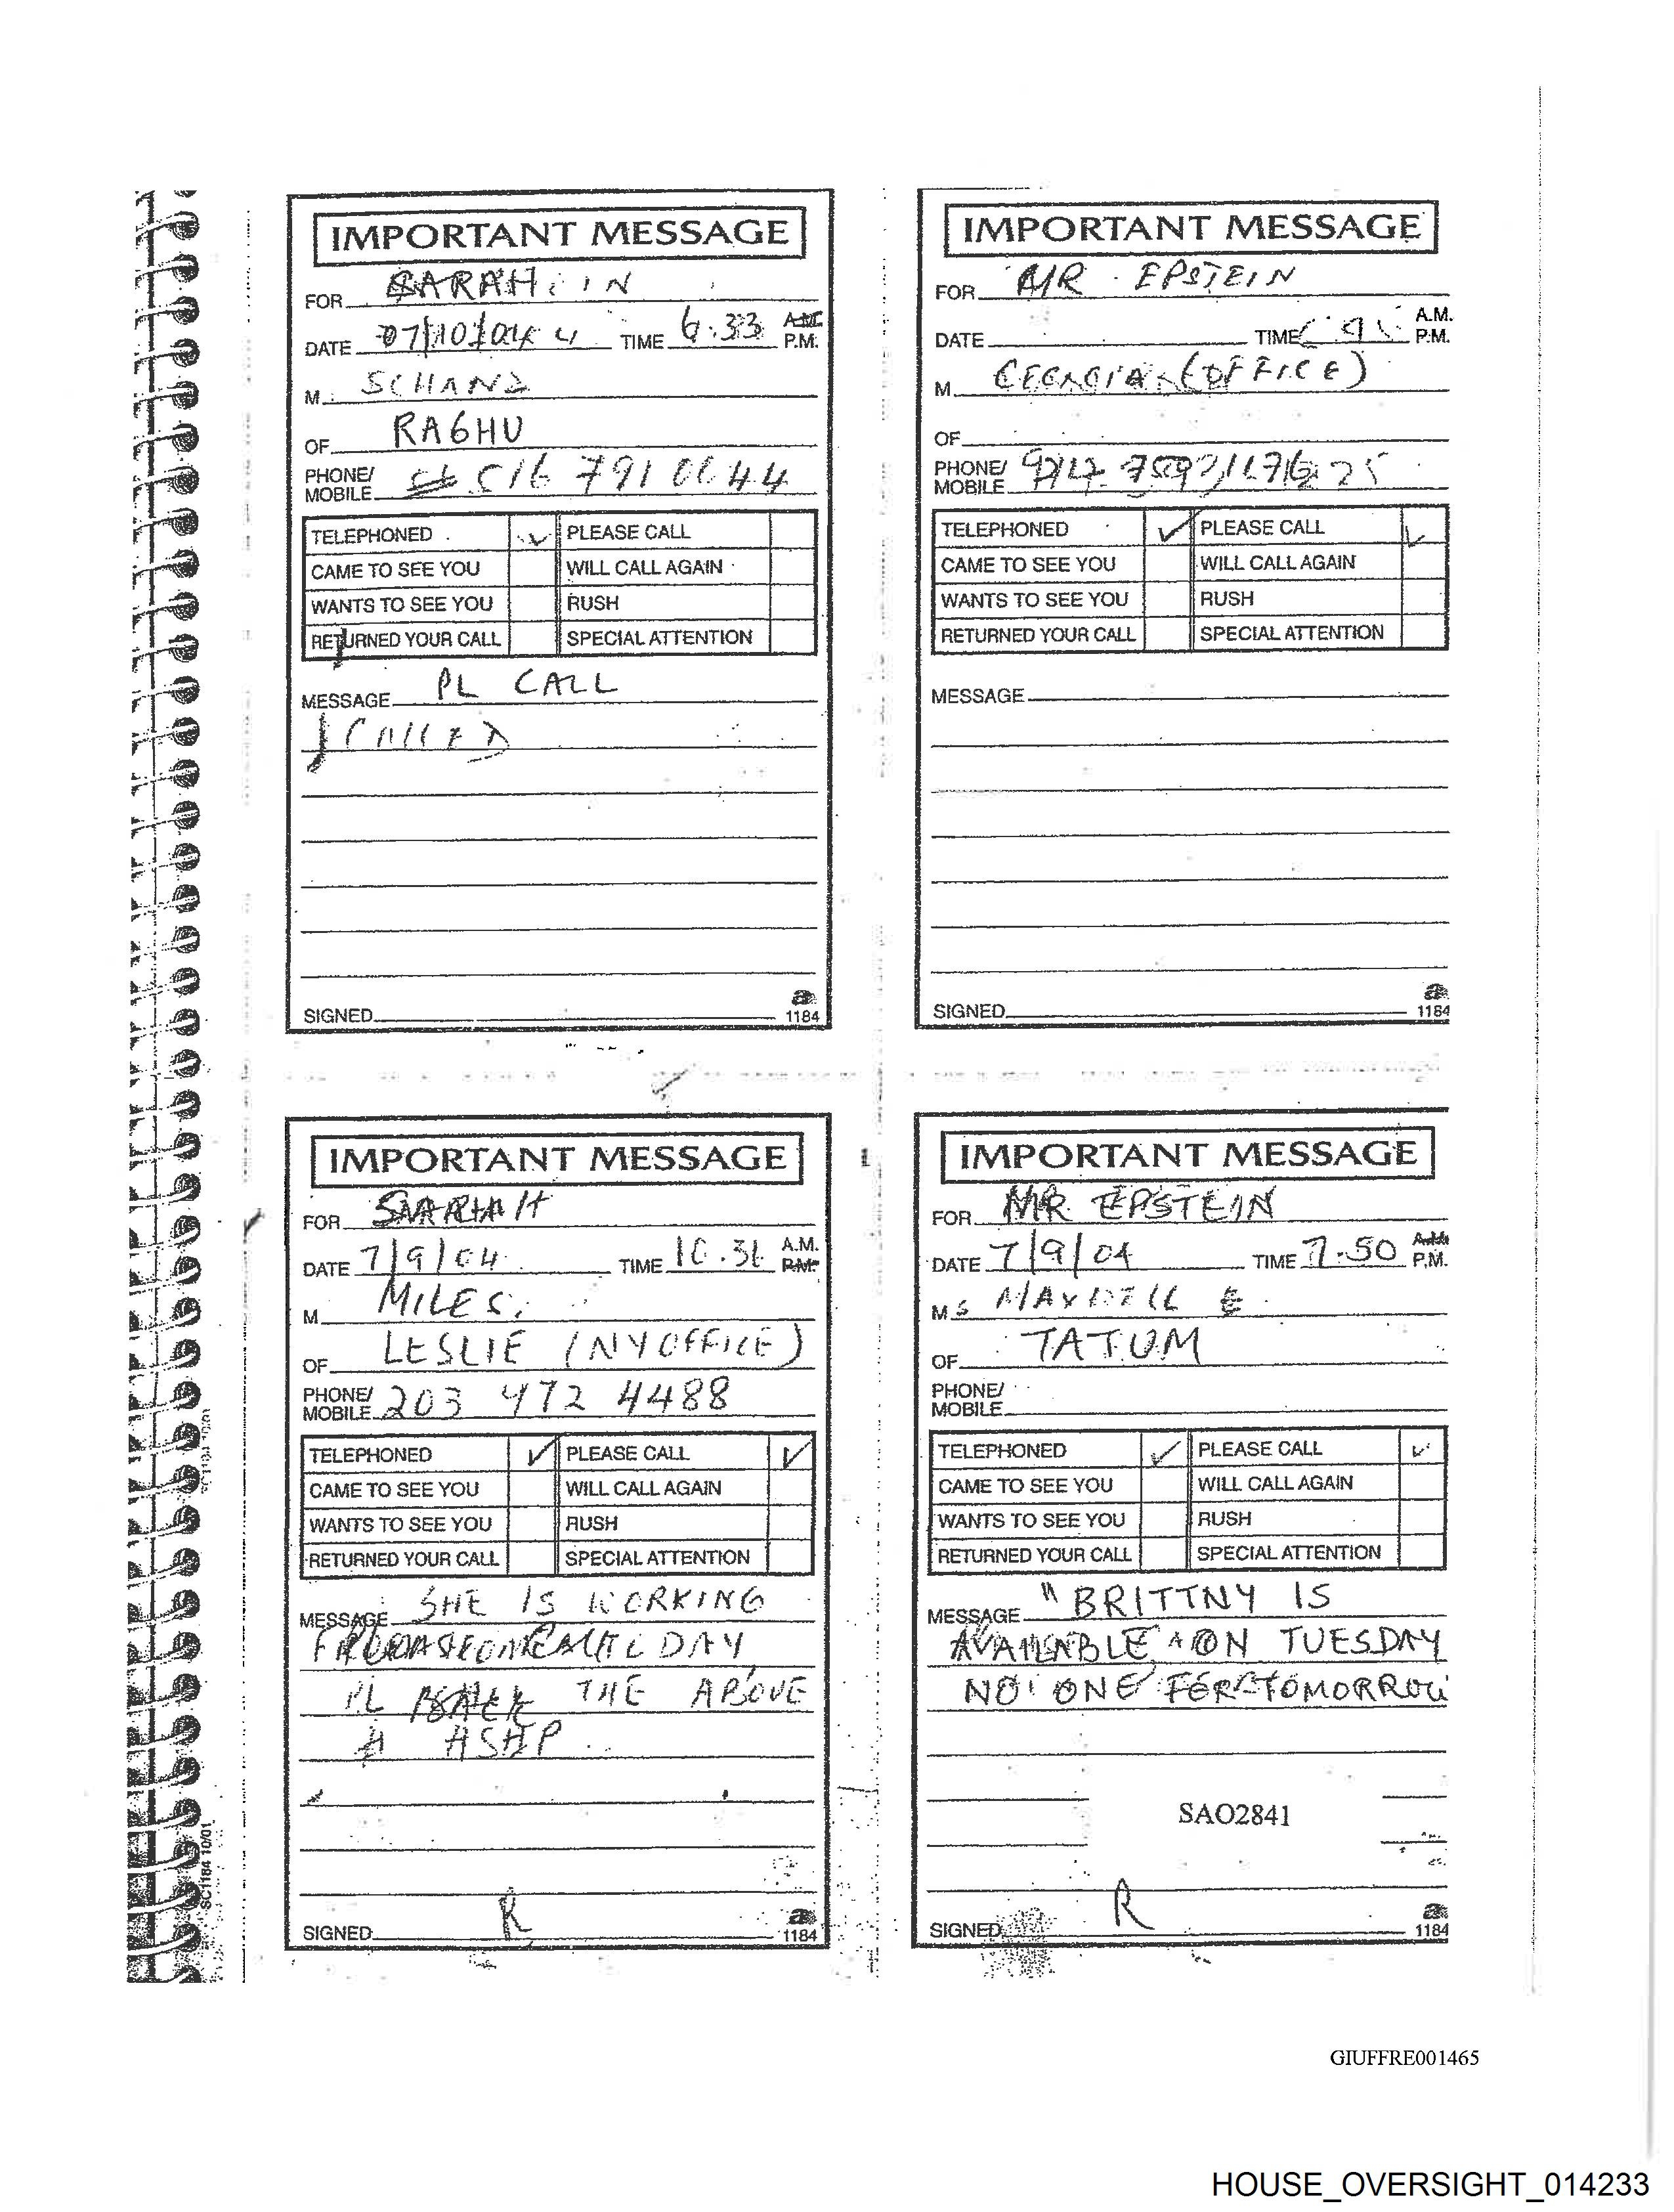 IMPORTANT MESSAGE
FOR SARAH
DATE 07/10/04 TIME 6:33 A.M. P.M.
M
OF RAGHU
PHONE/ MOBILE 516 791 0644
TELEPHONED PLEASE CALL
CAME TO SEE YOU WILL CALL AGAIN
WANTS TO SEE YOU RUSH
RETURNED YOUR CALL SPECIAL ATTENTION
MESSAGE PL CALL
SIGNED
1184
IMPORTANT MESSAGE
FOR MR EPSTEIN
DATE TIME A.M. P.M.
M (OFFICE)
OF
PHONE/ MOBILE
TELEPHONED PLEASE CALL
CAME TO SEE YOU WILL CALL AGAIN
WANTS TO SEE YOU RUSH
RETURNED YOUR CALL SPECIAL ATTENTION
MESSAGE
SIGNED
1184
IMPORTANT MESSAGE
FOR SARAH
DATE 7/9/04 TIME A.M. P.M.
M MILES.
OF LESLIE (NY OFFICE)
PHONE/ MOBILE 203 472 4488
TELEPHONED PLEASE CALL
CAME TO SEE YOU WILL CALL AGAIN
WANTS TO SEE YOU RUSH
RETURNED YOUR CALL SPECIAL ATTENTION
MESSAGE SHE IS WORKING
DAY
PL THE ABOVE
# ASAP
SIGNED R
1184
SC1184 10/01
IMPORTANT MESSAGE
FOR MR EPSTEIN
DATE 7/9/04 TIME 7.50 A.M. P.M.
MS MAXWELL
OF TATUM
PHONE/ MOBILE
TELEPHONED PLEASE CALL
CAME TO SEE YOU WILL CALL AGAIN
WANTS TO SEE YOU RUSH
RETURNED YOUR CALL SPECIAL ATTENTION
MESSAGE "BRITTNY IS
AVAILABLE ON TUESDAY
NO ONE FOR TOMORROW
SAO2841
SIGNED R
1184
GIUFFRE001465
HOUSE_OVERSIGHT_014233